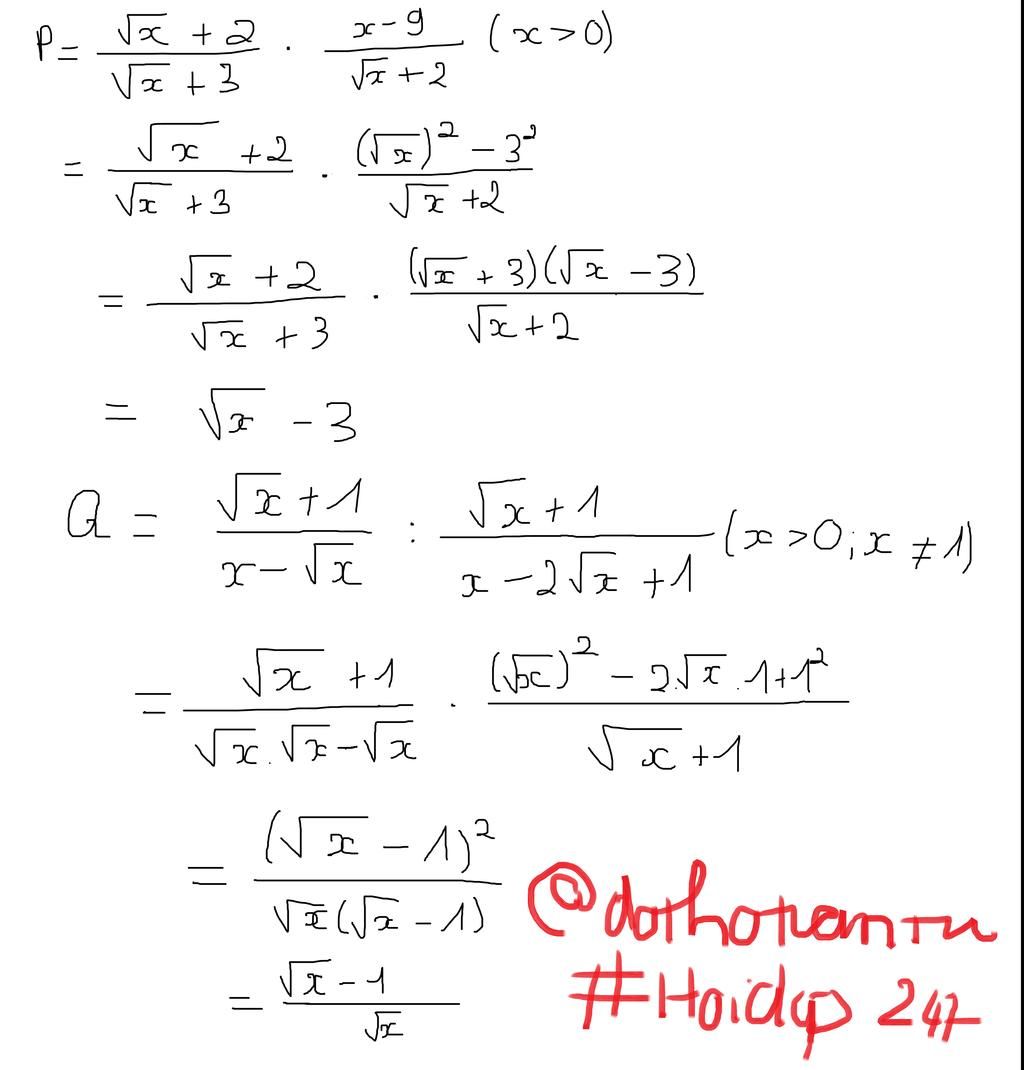 P = (√x + 2)/(√x + 3) . (x - 9)/(√x + 2) (x > 0)
= (√x + 2)/(√x + 3) . ((√x)² - 3²)/(√x + 2)
= (√x + 2)/(√x + 3) . ((√x + 3)(√x - 3))/(√x + 2)
= √x - 3
Q = (√x + 1)/(x - √x) : (√x + 1)/(x - 2√x + 1) (x > 0; x ≠ 1)
= (√x + 1)/(√x . √x - √x) . ((√x)² - 2.√x . 1 + 1²)/(√x + 1)
= (√x - 1)²/(√x(√x - 1))
= (√x - 1)/√x
#Hoidap 247